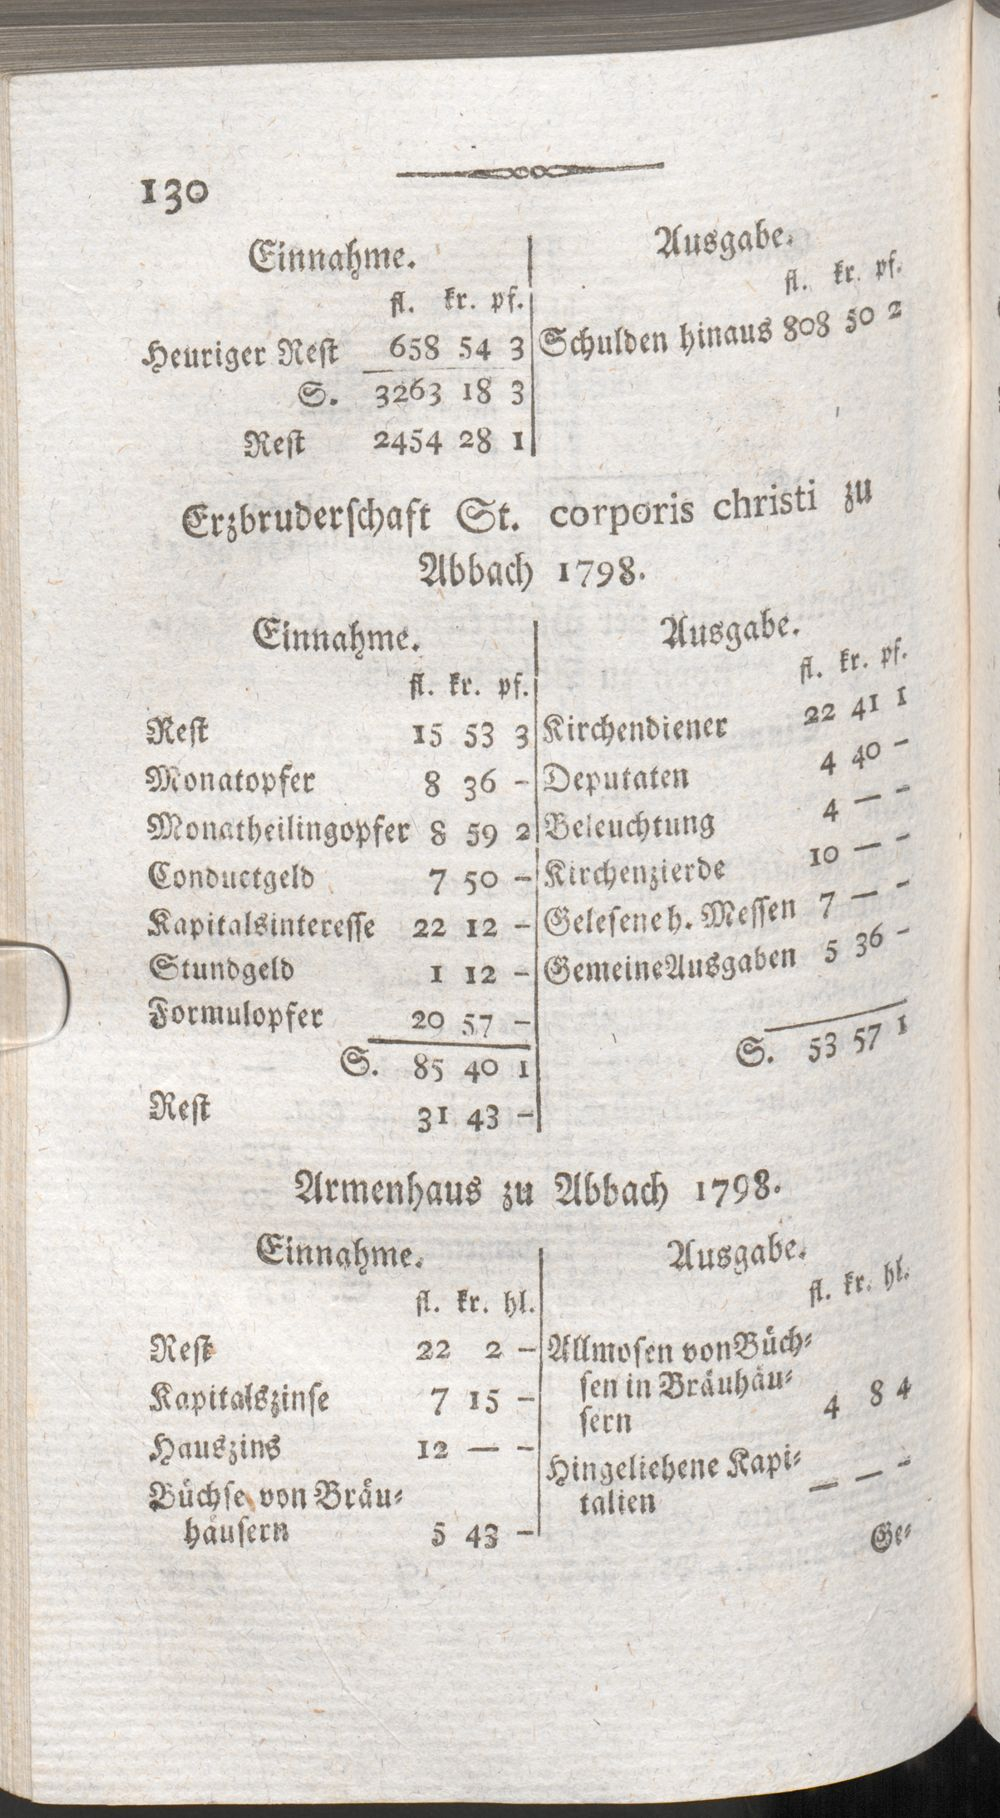 130
Einnahme. Ausgabe.
fl. kr. pf. fl. kr. pf.
Heuriger Rest 658 54 3 Schulden hinaus 808 50 2
S. 3263 18 3
Rest 2454 28 1
Erzbruderschaft St. corporis christi zu
Abbach 1798.
Einnahme. Ausgabe.
fl. kr. pf. fl. kr. pf.
Rest 15 53 3 Kirchendiener 22 41 1
Monatopfer 8 36 – Deputaten 4 40 –
Monatheilingopfer 8 59 2 Beleuchtung 4 — –
Conductgeld 7 50 – Kirchenzierde 10 — –
Kapitalsinteresse 22 12 – Gelesene h. Messen 7 — –
Stundgeld 1 12 – Gemeine Ausgaben 5 36 –
Formulopfer 20 57 –
S. 85 40 1 S. 53 57 1
Rest 31 43 –
Armenhaus zu Abbach 1798.
Einnahme. Ausgabe.
fl. kr. hl. fl. kr. hl.
Rest 22 2 – Allmosen von Büch-
Kapitalszinse 7 15 – sen in Bräuhäu-
sern 4 8 4
Hauszins 12 — – Hingeliehene Kapi-
Büchse von Bräu- talien — — –
häusern 5 43 –
Ge-